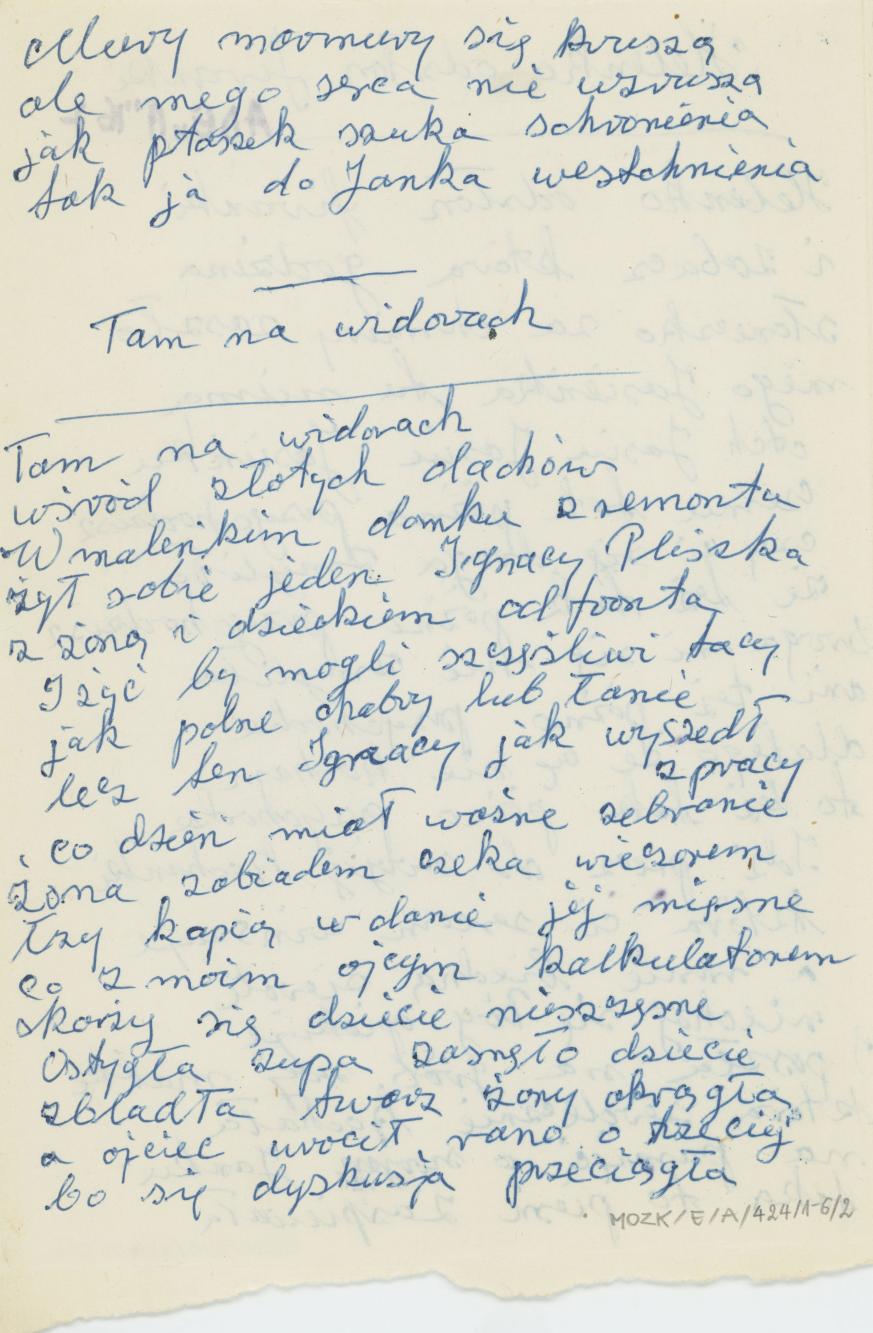 Mury marmury się kruszą
ale mego serca nie wzrusza
jak ptaszek szuka schronienia
tak ja do Janka westchnienia
Tam na widorach
Tam na widorach
wśród złotych dachów
W maleńkim domku z remontu
żył sobie jeden Ignacy Pliszka
z żoną i dzieckiem od frontu
I żyć by mogli szczęśliwi tacy
jak polne chabry lub łanie
lecz ten Ignaacy jak wyszedł
z pracy
co dzień miał ważne zebranie
żona zobiadem czeka wieczorem
łzy kapią w danie jej mięsne
co z moim ojcym kalkulatorem
skarży się dziecie nieszczęsne
Ostygła zupa zasnęło dziecię
zbladła twarz żony okrągła
a ojciec wrócił rano o trzeciej
bo się dyskusja przeciągła
MOZK/E/A/424/1-6/2